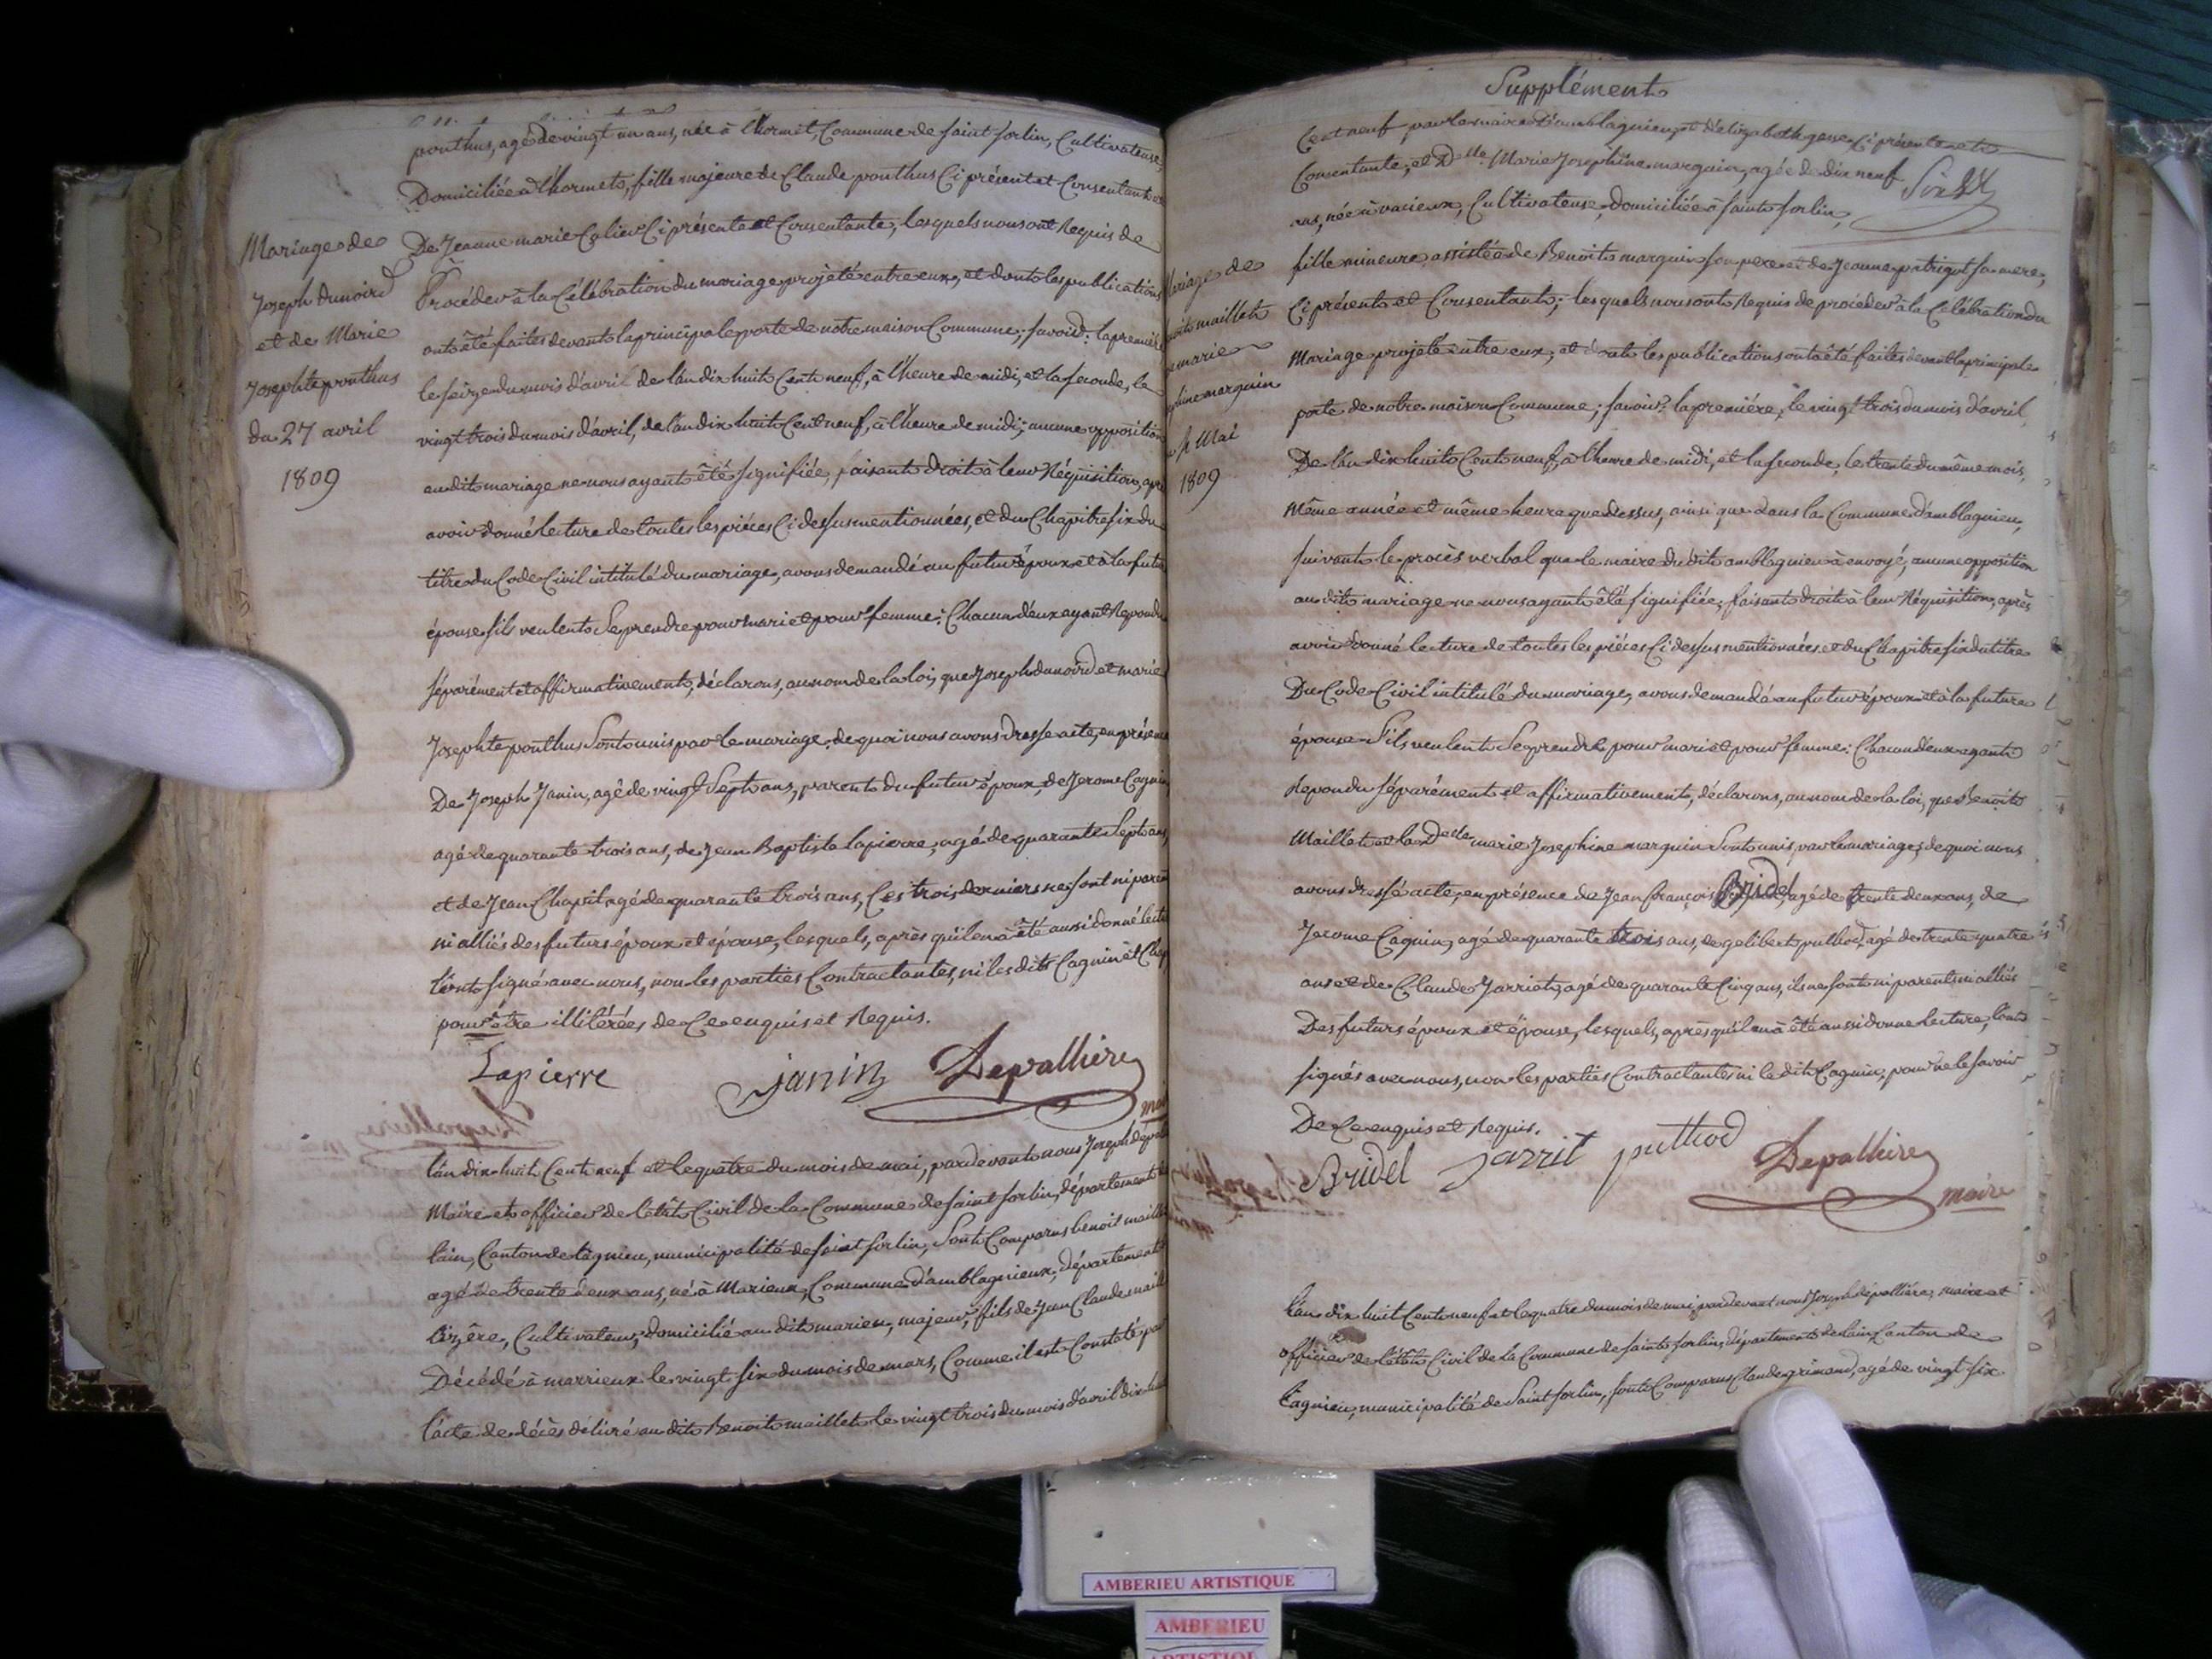 Mariage de
Joseph dunoird
et de Marie
Josephte ponthus
du 27 avril
1809
ponthus, agé de vingt un ans, née à lhormet, Commune de saint sorlin, Cultivateuse
Domiciliée à lhormet, fille majeure de Claude ponthus Ci présent et Consentant et
De Jeanne marie Ci présente et Consentante, lesquels nous ont Requis de
Procéder à la Célébration du mariage projeté entre eux, et dont les publications
ont été faites devant la principale porte de notre maison Commune; savoir: la premiè
le seize du mois d'avril de l'an dix huit Cent neuf, à l'heure de midi, et la seconde, le
vingt trois du mois d'avril, de l'an dix huit Cent neuf, à l'heure de midi; aucune opposition
au dit mariage ne nous ayant été signifiée, faisant droit à leur Réquisition, apr
avoir donné lecture de toutes les pièces Ci dessus mentionnées, et du Chapitre six du
titre du Code Civil intitulé du mariage, avons demandé au futur époux et à la futu
épouse s'ils veulent Se prendre pour mari et pour femme; Chacun d'eux ayant Repondu
séparément et affirmativement, déclarons, au nom de la loi, que Joseph dunoird et marie
Josephte ponthus Sont unis par le mariage, de quoi nous avons dressé acte, en présen
De Joseph Janin, agé de vingt Sept ans, parent du futur époux, de Jerome Cagnin
agé de quarante trois ans, de Jean Baptiste lapierre, agé de quarante Sept ans,
et de Jean agé de quarante trois ans, Ces trois derniers ne sont ni paren
ni alliés des futurs époux et épouse, lesquels, après qu'il en à été aussi donné lectu
l'ont signé avec nous, non les parties Contractantes, ni les dits Cagnin et
pour être illitérées de Ce enquis et Requis.
Lapierre janin Depallière
mai
l'an dix huit Cent neuf et le quatre du mois de mai, par devant nous Joseph depal
Maire et officier de l'état Civil de la Commune de saint sorlin, département de
l'ain, Canton de lagnieu, municipalité de saint sorlin, Sont Comparus benoit maillet
agé de trente deux ans, né à Marieux, Commune d'amblagnieux, département de
l'izère, Cultivateur, domicilié au dit marieu, majeur, fils de Jean Claude maill
Décédé à marrieux le vingt six du mois de mars, Comme il est Constaté par
l'acte de décès délivré au dit Benoit maillet le vingt trois du mois d'avril dix hui
Supplément
Mariage de
maillet
marie
marguin
Mai
1809
Cent neuf par le maire d'amblagnieu, et d'elizabeth Ci présente et
Consentante, et Dlle Marie Josephine marguin, agée de dix neuf
ans, née à vacieux, Cultivateuse, domiciliée à saint sorlin,
fille mineure assistée de Benoit marguin son pere et de Jeanne sa mere,
Ci présents et Consentants; lesquels nous ont Requis de procéder à la Célébration du
Mariage projeté entre eux, et dont les publications ont été faites devant la principale
porte de notre maison Commune; savoir: la première, le vingt trois du mois d'avril
De l'an dix huit Cent neuf, à l'heure de midi, et la seconde, le trente du même mois,
Même année et même heure que dessus, ainsi que dans la Commune d'amblagnieu,
suivant le procès verbal que le maire du dit amblagnieu à envoyé; aucune opposition
au dit mariage ne nous ayant été signifiée; faisant droit à leur Réquisition, après
avoir donné lecture de toutes les pièces Ci dessus mentionnées et du Chapitre six du titre
Du Code Civil intitulé du mariage, avons demandé au futur époux et à la future
épouse S'ils veulent Se prendre pour mari et pour femme; Chacun d'eux ayant
Repondu séparément et affirmativement, déclarons, au nom de la loi, que Benoit
Maillet et la Delle marie Josephine marguin Sont unis par le mariage, de quoi nous
avons dressé acte, en présence de Jean François Bridel, agé de trente deux ans, de
Jerome Cagnin, agé de quarante trois ans, de gelibert puthod, agé de trente quatre
ans et de Claude Jarriot, agé de quarante Cinq ans, ils ne sont ni parents ni alliés
Des futurs époux et épouse, lesquels, après qu'il en à été aussi donné lecture, l'ont
signés avec nous, non les parties Contractantes ni le dit Cagnin, pour ne le savoir
De Ce enquis et Requis.
Bridel jarrit puthod Depallière
maire
l'an dix huit Cent neuf et le quatre du mois de mai, par devant nous Joseph depallière, maire et
officier de l'état Civil de la Commune de saint sorlin, département de l'ain Canton de
Lagnieu, municipalité de Saint sorlin, sont Comparus Claude grimand, agé de vingt six
AMBERIEU ARTISTIQUE
AMBERIEU
ARTISTIQUE